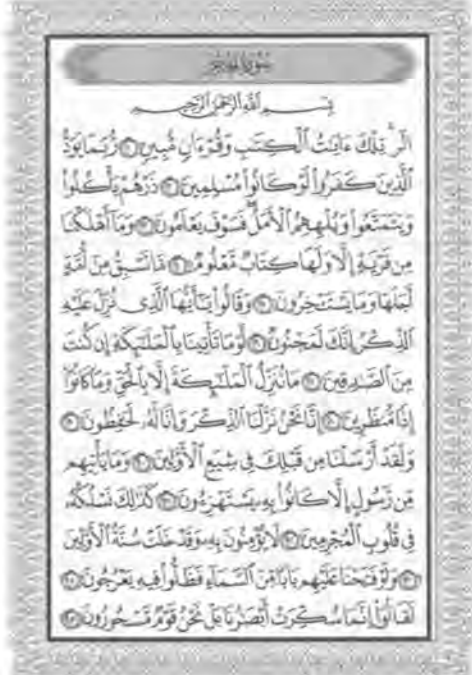 سُورَةُ الحِجْرِ
بِسْمِ ٱللَّهِ ٱلرَّحْمَٰنِ ٱلرَّحِيمِ
الٓر تِلْكَ ءَايَٰتُ ٱلْكِتَٰبِ وَقُرْءَانٍ مُّبِينٍ ١ رُّبَمَا يَوَدُّ
ٱلَّذِينَ كَفَرُوا۟ لَوْ كَانُوا۟ مُسْلِمِينَ ٢ ذَرْهُمْ يَأْكُلُوا۟
وَيَتَمَتَّعُوا۟ وَيُلْهِهِمُ ٱلْأَمَلُ فَسَوْفَ يَعْلَمُونَ ٣ وَمَآ أَهْلَكْنَا
مِن قَرْيَةٍ إِلَّا وَلَهَا كِتَابٌ مَّعْلُومٌ ٤ مَّا تَسْبِقُ مِنْ أُمَّةٍ
أَجَلَهَا وَمَا يَسْتَـْٔخِرُونَ ٥ وَقَالُوا۟ يَٰٓأَيُّهَا ٱلَّذِى نُزِّلَ عَلَيْهِ
ٱلذِّكْرُ إِنَّكَ لَمَجْنُونٌ ٦ لَّوْ مَا تَأْتِينَا بِٱلْمَلَٰٓئِكَةِ إِن كُنتَ
مِنَ ٱلصَّٰدِقِينَ ٧ مَا نُنَزِّلُ ٱلْمَلَٰٓئِكَةَ إِلَّا بِٱلْحَقِّ وَمَا كَانُوٓا۟
إِذًا مُّنظَرِينَ ٨ إِنَّا نَحْنُ نَزَّلْنَا ٱلذِّكْرَ وَإِنَّا لَهُۥ لَحَٰفِظُونَ ٩
وَلَقَدْ أَرْسَلْنَا مِن قَبْلِكَ فِى شِيَعِ ٱلْأَوَّلِينَ ١٠ وَمَا يَأْتِيهِم
مِّن رَّسُولٍ إِلَّا كَانُوا۟ بِهِۦ يَسْتَهْزِءُونَ ١١ كَذَٰلِكَ نَسْلُكُهُۥ
فِى قُلُوبِ ٱلْمُجْرِمِينَ ١٢ لَا يُؤْمِنُونَ بِهِۦ وَقَدْ خَلَتْ سُنَّةُ ٱلْأَوَّلِينَ
١٣ وَلَوْ فَتَحْنَا عَلَيْهِم بَابًا مِّنَ ٱلسَّمَآءِ فَظَلُّوا۟ فِيهِ يَعْرُجُونَ ١٤
لَقَالُوٓا۟ إِنَّمَا سُكِّرَتْ أَبْصَٰرُنَا بَلْ نَحْنُ قَوْمٌ مَّسْحُورُونَ ١٥